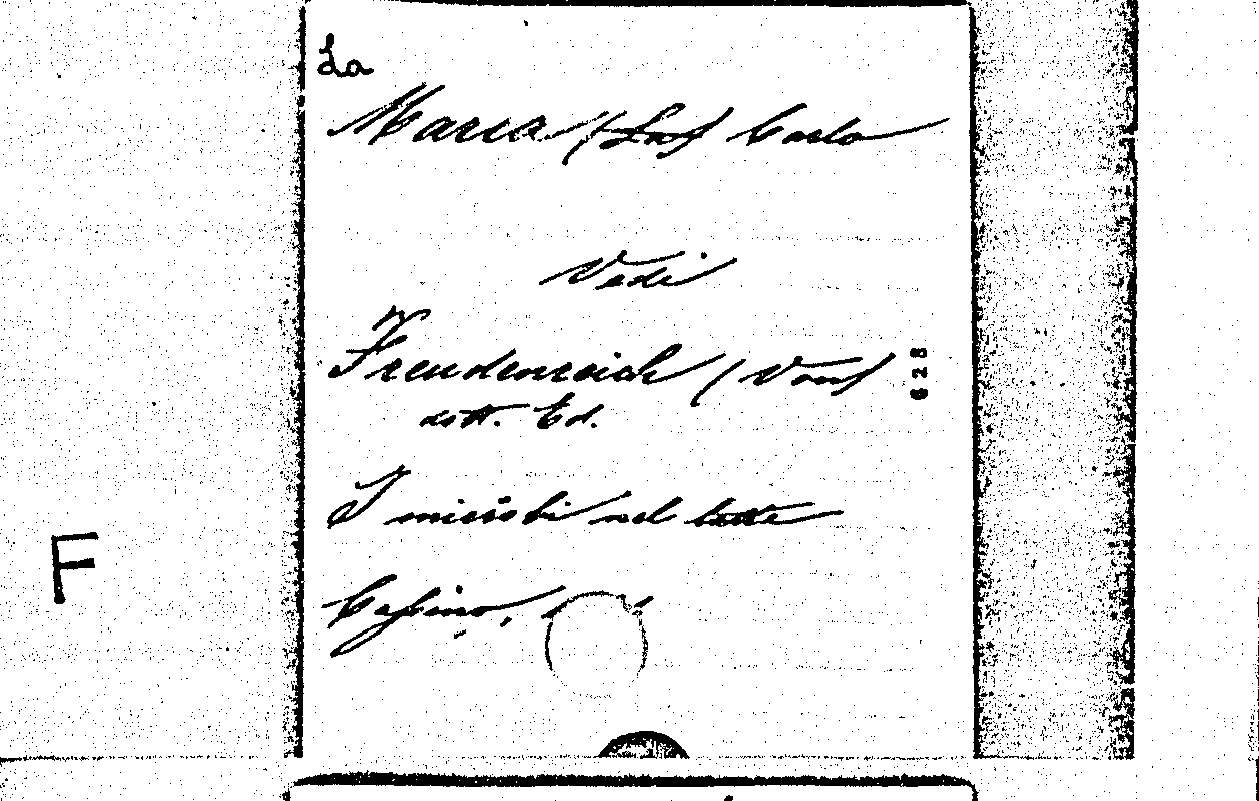 La
Marca (La) Carlo
Vedi
Freudenreich (Von)
dott. Ed.
I microbi nel latte
Cassino,
628
F